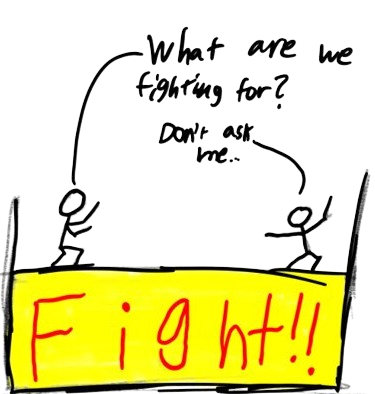 What are we
fighting for?
Don't ask
me..
Fight!!